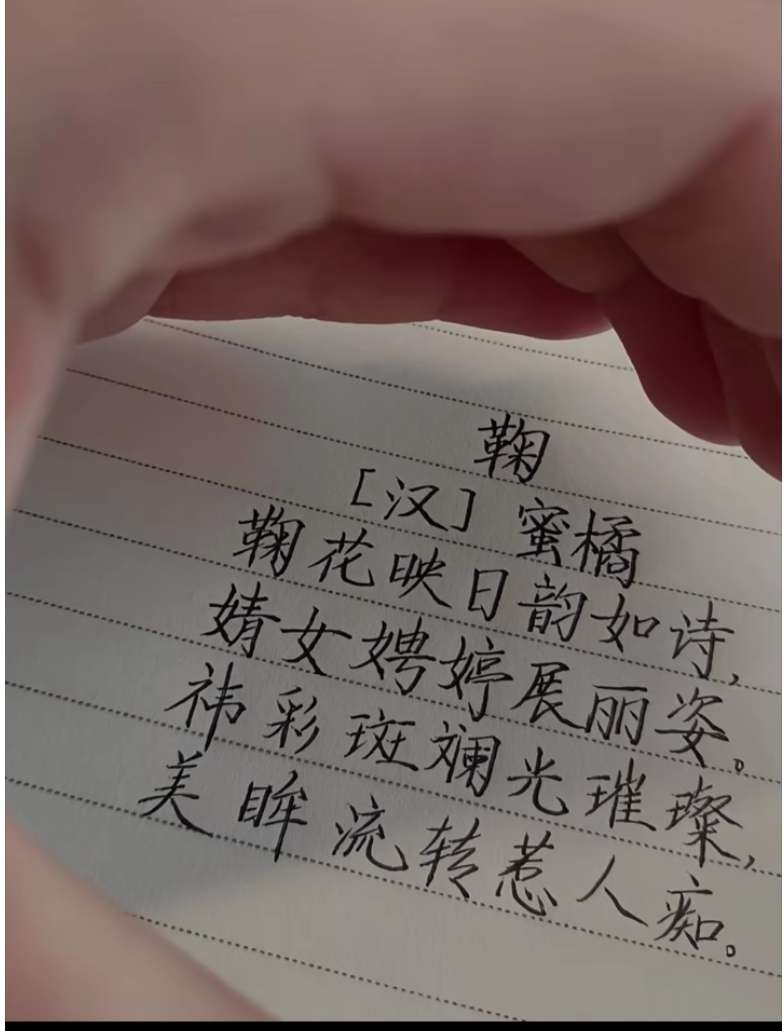 鞠
[汉] 蜜橘
鞠花映日韵如诗,
婧女娉婷展丽姿。
祎彩斑斓光璀璨,
美眸流转惹人痴。